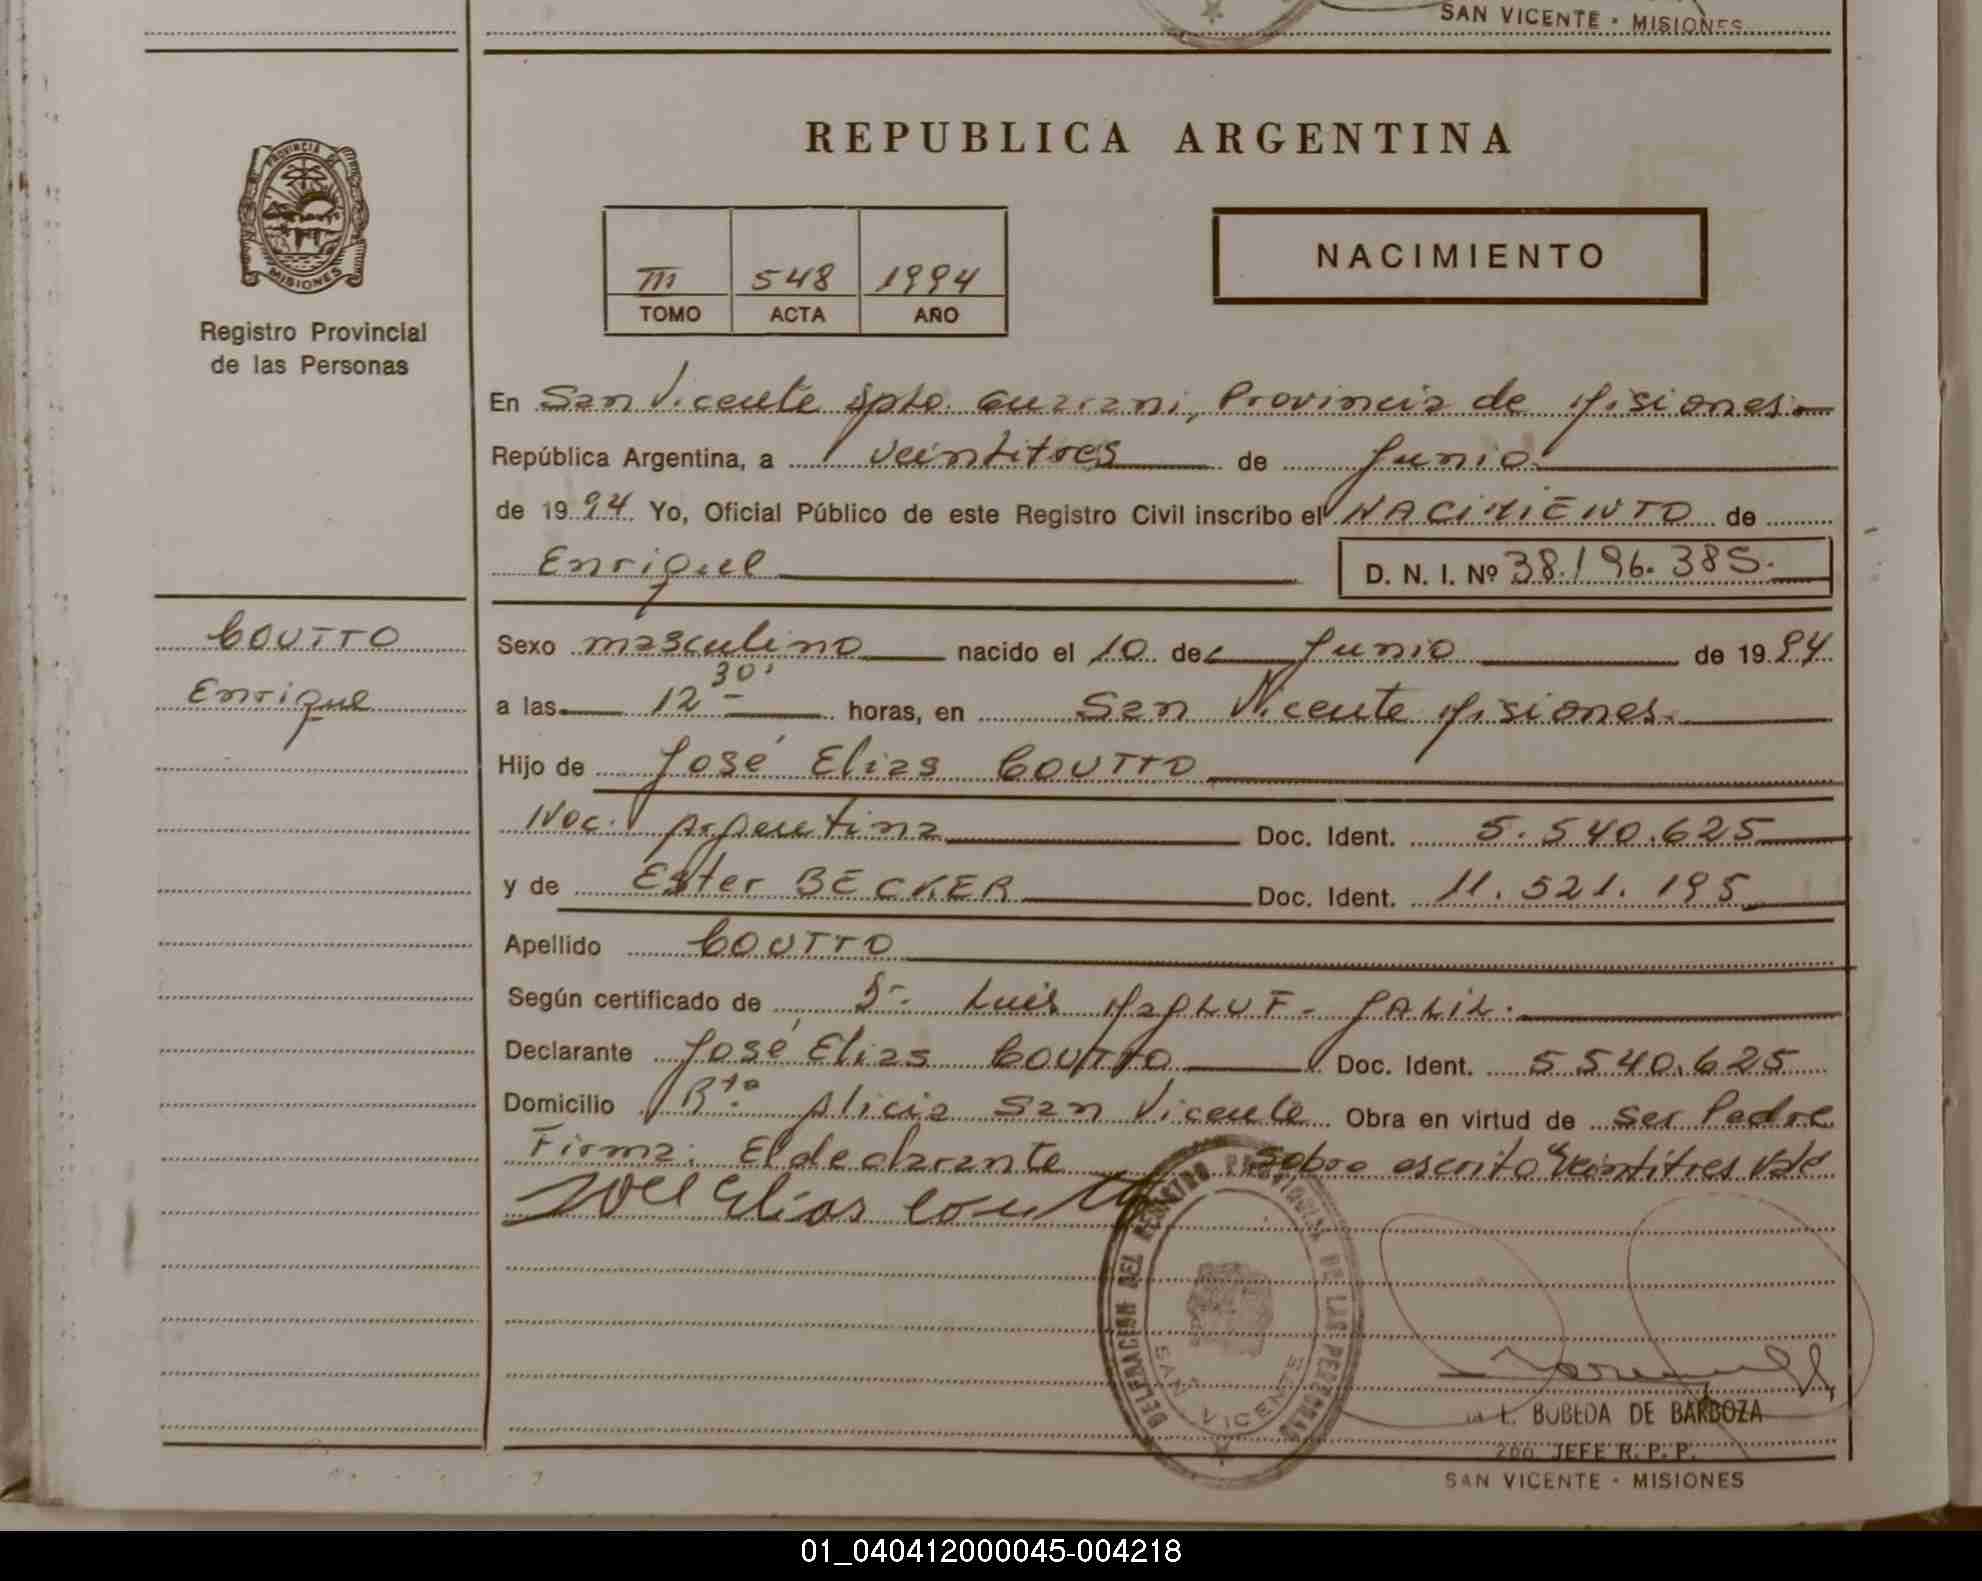 SAN VICENTE - MISIONES
REPUBLICA ARGENTINA
PROVINCIA DE
MISIONES
Registro Provincial
de las Personas
III 548 1994
TOMO ACTA AÑO
NACIMIENTO
En San Vicente Dpto. Guarani, Provincia de Misiones.
República Argentina, a veintitres de Junio
de 1994 Yo, Oficial Público de este Registro Civil inscribo el NACIMIENTO de
Enrique D. N. I. Nº 38.196.385.
COUTTO
Enrique
Sexo masculino nacido el 10 de Junio de 1994
a las 12 30' horas, en San Vicente Misiones.
Hijo de José Elias COUTTO
Nac. Argentina Doc. Ident. 5.540.625
y de Ester BECKER Doc. Ident. 11.521.195
Apellido COUTTO
Según certificado de Dr. Luis MaGLUF - JALIL.
Declarante José Elias COUTTO Doc. Ident. 5.540.625
Domicilio Bº Alicia San Vicente Obra en virtud de ser Padre
Firma: El declarante Sobre escrito "veintitres Vale
José Elias Coutto
DELEGACION DEL REGISTRO PROVINCIAL DE LAS PERSONAS
SAN VICENTE
E. BOBEDA DE BARBOZA
2do. JEFE R. P. P.
SAN VICENTE - MISIONES
01_040412000045-004218